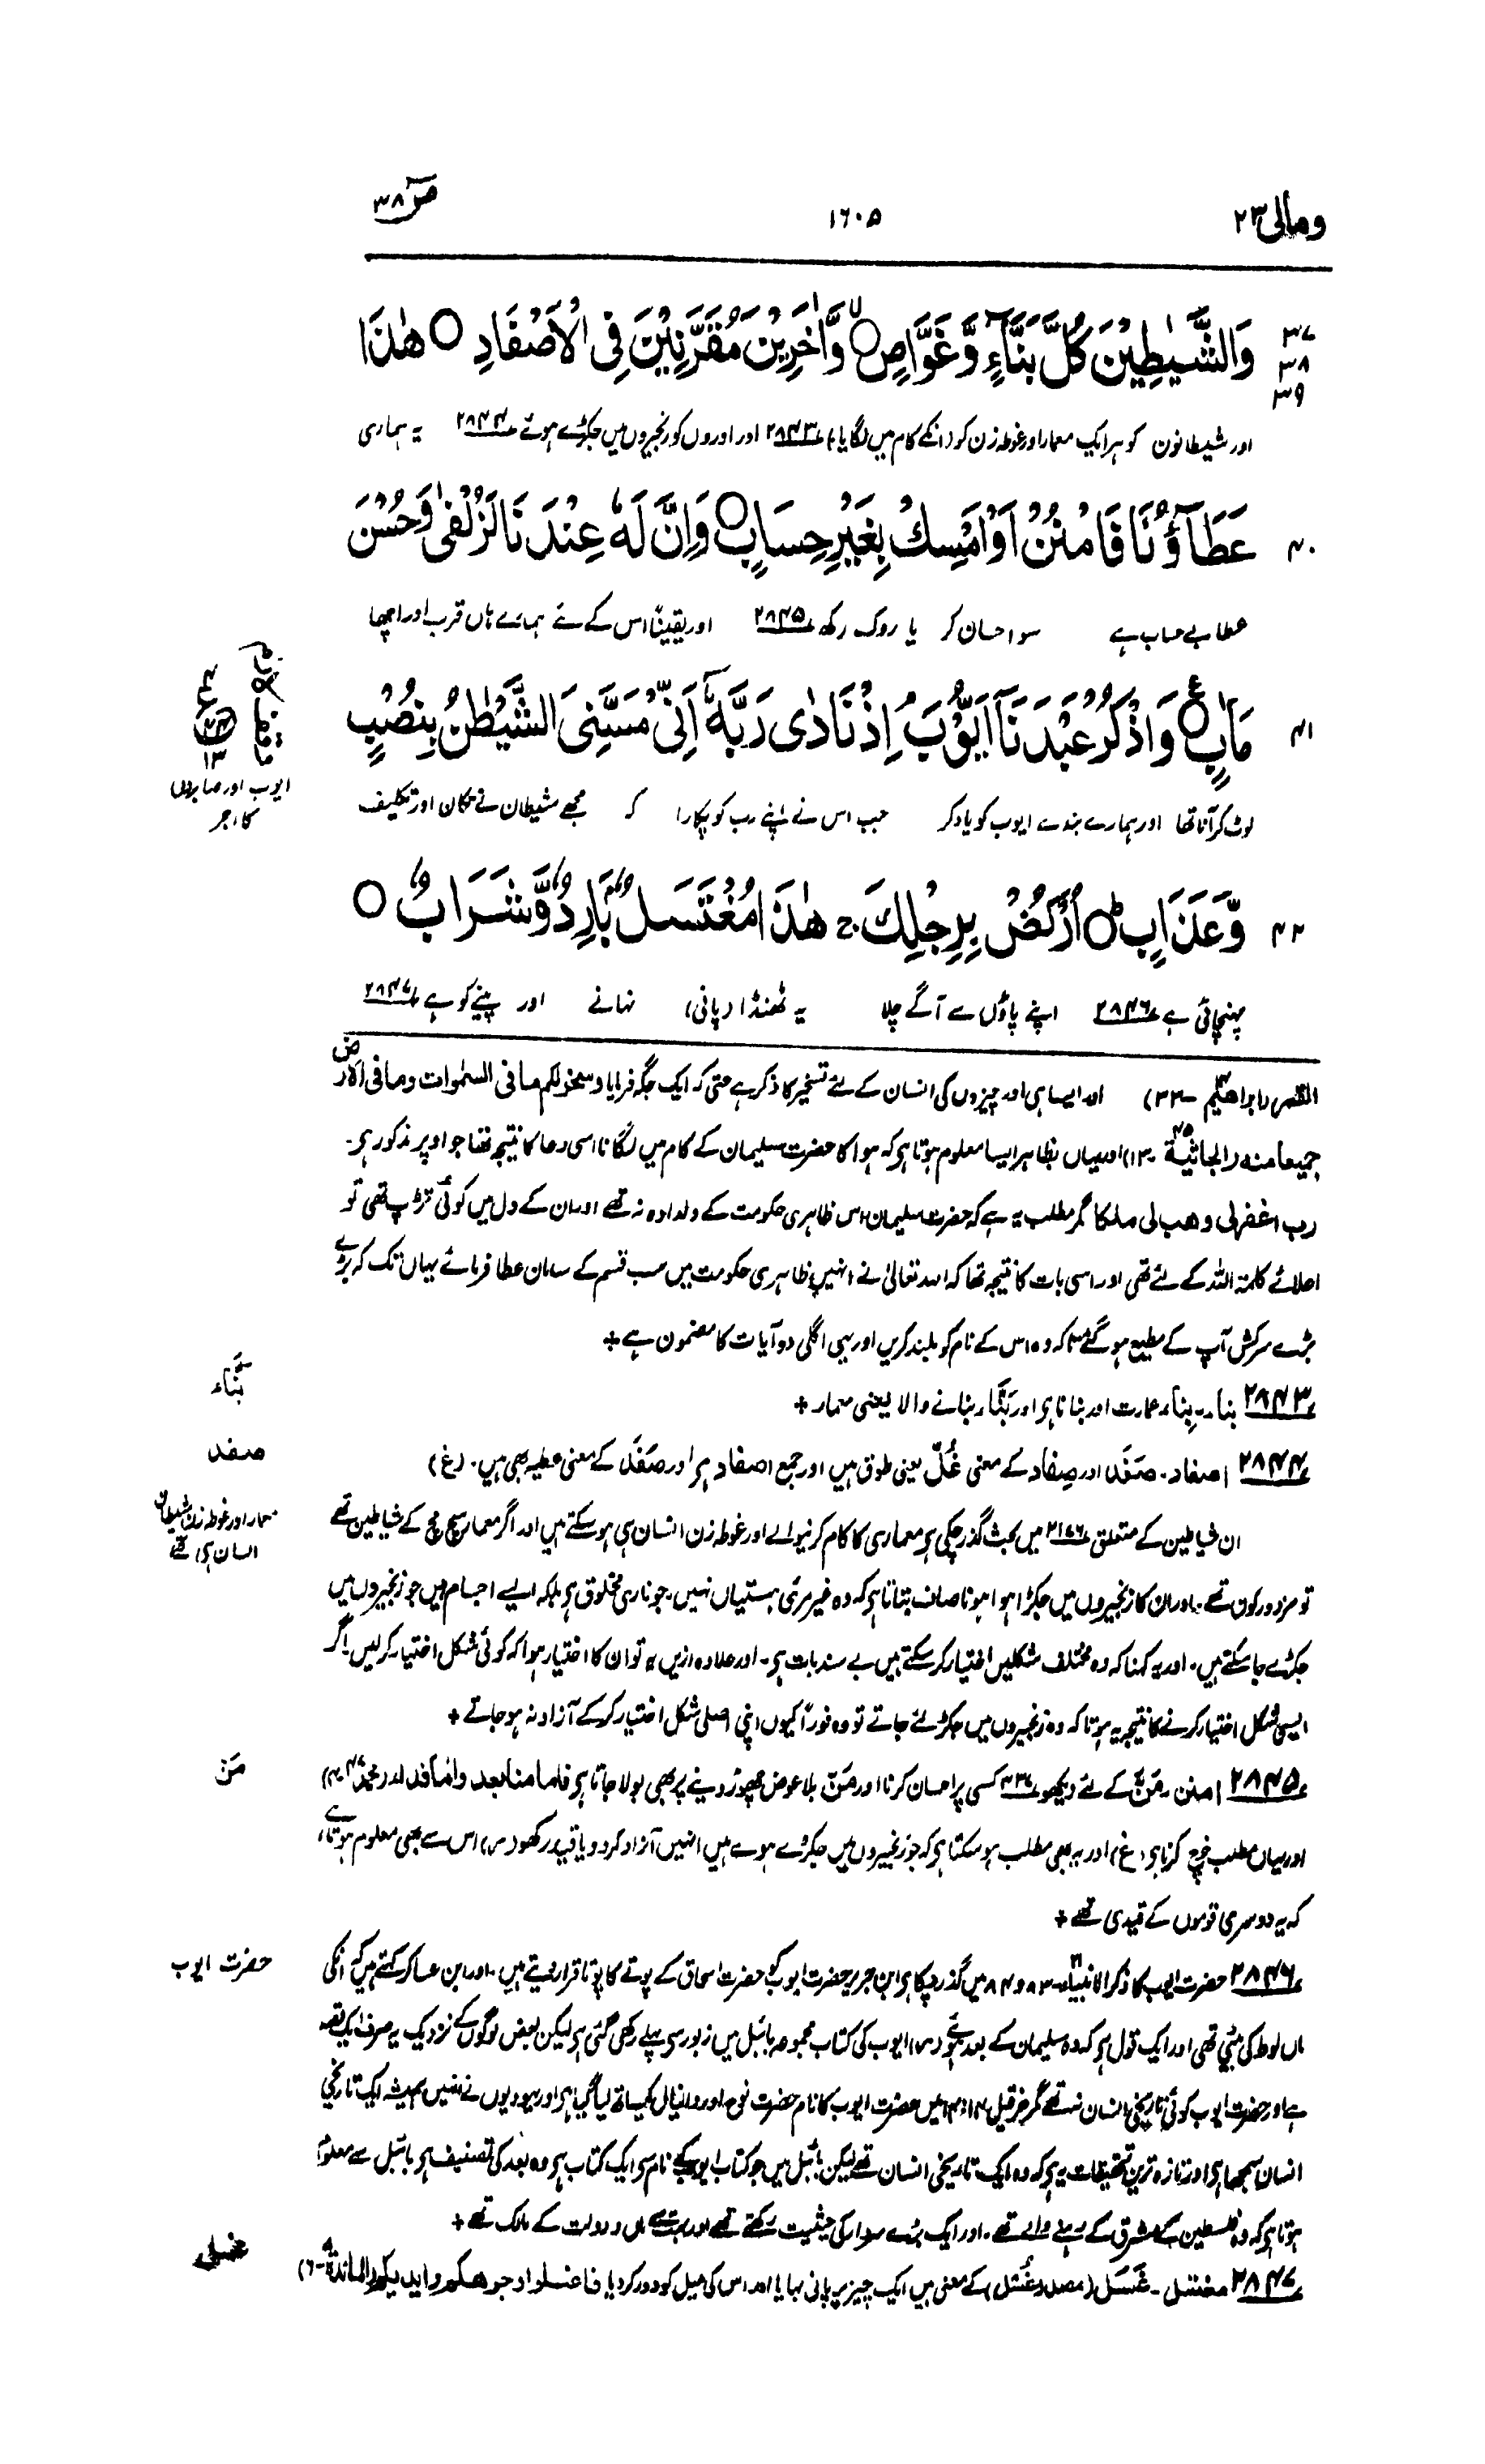 ومالی ۲۳
۱۶۰۵
صٓ ۳۸
۳۷
۳۸
۳۹
وَالشَّيٰطِيْنَ كُلَّ بَنَّآءٍ وَّغَوَّاصٍ ۙ وَّاٰخَرِيْنَ مُقَرَّنِيْنَ فِى الْاَصْفَادِ ۝ هٰذَا
اور شیطانوں کو ہر ایک معمار اور غوطہ زن کو (انکے کام میں لگایا) ۲۸۴۳ اور اوروں کو زنجیروں میں جکڑے ہوئے ۲۸۴۴ یہ ہماری
۴۰
عَطَآؤُنَا فَامْنُنْ اَوْ اَمْسِكْ بِغَيْرِ حِسَابٍ ۝ وَاِنَّ لَهٗ عِنْدَنَا لَزُلْفٰى وَحُسْنَ
عطا بے حساب ہے سو احسان کر یا روک رکھ ۲۸۴۵ اور یقیناً اس کے لئے ہمارے ہاں قرب اور اچھا
۴۱
مَاٰبٍ ۝ وَاذْكُرْ عَبْدَنَآ اَيُّوْبَ ۘ اِذْ نَادٰى رَبَّهٗٓ اَنِّىْ مَسَّنِىَ الشَّيْطٰنُ بِنُصْبٍ
ع
۱۳
ایوب اور صابروں
کا اجر
لوٹ کر آنا تھا اور ہمارے بندے ایوب کو یاد کر جب اس نے اپنے رب کو پکارا کہ مجھے شیطان نے تکان اور تکلیف
۴۲
وَّعَذَابٍ ۝ اُرْكُضْ بِرِجْلِكَ ۚ هٰذَا مُغْتَسَلٌۢ بَارِدٌ وَّشَرَابٌ ۝
پہنچائی ہے ۲۸۴۶ اپنے پاؤں سے آگے چلا یہ ٹھنڈا (پانی) نہانے اور پینے کو ہے ۲۸۴۷
القمر (ابراھیم - ۳۳) اور ایسا ہی اور چیزوں کی انسان کے لئے تسخیر کا ذکر ہے حتی کہ ایک جگہ فرمایا وسخر لکم ما فی السمٰوات وما فی الارض
جمیعا منہ (الجاثیۃ ۱۳) اور یہاں بظاہر ایسا معلوم ہوتا ہے کہ ہوا کا حضرت سلیمان کے کام میں لگانا اسی دعا کا نتیجہ تھا جو اوپر مذکور ہے۔
رب اغفرلی وھب لی ملکا مگر مطلب یہ ہے کہ حضرت سلیمان اس ظاہری حکومت کے دلدادہ نہ تھے اور ان کے دل میں کوئی تڑپ تھی تو
اعلائے کلمۃ اللہ کے لئے تھی اور اسی بات کا نتیجہ تھا کہ اللہ تعالیٰ نے انہیں ظاہری حکومت میں سب قسم کے سامان عطا فرمائے یہاں تک کہ بڑے
بڑے سرکش آپ کے مطیع ہو گئے تاکہ وہ اس کے نام کو بلند کریں اور یہی اگلی دو آیات کا مضمون ہے +
بنّاء
۲۸۴۳ بناء۔ بِناء عمارت اور بنانا ہے اور بَنّاء بنانے والا یعنی معمار +
صفد
۲۸۴۴ اصفاد۔ صَفَد اور صِفاد کے معنی غُلّ یعنی طوق ہیں اور جمع اصفاد ہے اور صَفَد کے معنی عطیہ بھی ہیں۔ (غ)
معمار اور غوطہ زن شیطان
انسان ہی تھے
ان شیاطین کے متعلق ۲۱۷۶ میں بحث گذر چکی ہے معماری کا کام کرنیوالے اور غوطہ زن انسان ہی ہو سکتے ہیں اور اگر معمار سچ مچ کے شیاطین تھے
تو مزدور کون تھے۔ اور ان کا زنجیروں میں جکڑا ہوا ہونا صاف بتاتا ہے کہ وہ غیر مرئی ہستیاں نہیں۔ جو ناری مخلوق ہے بلکہ ایسے اجسام ہیں جو زنجیروں میں
جکڑے جا سکتے ہیں۔ اور یہ کہنا کہ وہ مختلف شکلیں اختیار کر سکتے ہیں بے سند بات ہے۔ اور علاوہ ازیں یہ تو ان کا اختیار ہوا کہ کوئی شکل اختیار کرلیں اگر
ایسی شکل اختیار کرنے کا نتیجہ یہ ہوتا کہ وہ زنجیروں میں جکڑ لئے جاتے تو وہ فوراً کیوں اپنی اصلی شکل اختیار کرکے آزاد نہ ہو جاتے +
مَنّ
۲۸۴۵ امنن۔ مَنّ کے لئے دیکھو ۳۳۶ کسی پر احسان کرنا اور مَنّ بلا عوض چھوڑ دینے پر بھی بولا جاتا ہے فاما منا بعد واما فداء (محمد ۴)
اور یہاں مطلب خرچ کرنا ہے (غ) اور یہ بھی مطلب ہو سکتا ہے کہ جو زنجیروں میں جکڑے ہوئے ہیں انہیں آزاد کر دو یا قید رکھو (س) اس سے بھی معلوم ہوتا ہے
کہ یہ دوسری قوموں کے قیدی تھے +
حضرت ایوب
۲۸۴۶ حضرت ایوب کا ذکر الانبیاء ۸۳ و ۸۴ میں گذر چکا ہے ابن جریر حضرت ایوب کو حضرت اسحاق کے پوتے کا پوتا قرار دیتے ہیں۔ اور ابن عساکر کہتے ہیں کہ انکی
ماں لوط کی بیٹی تھی اور ایک قول ہے کہ وہ سلیمان کے بعد ہوئے (س) ایوب کی کتاب مجموعہ بائبل میں زبور سے پہلے رکھی گئی ہے لیکن بعض لوگوں کے نزدیک یہ صرف ایک قصہ
ہے اور حضرت ایوب کوئی تاریخی انسان نہ تھے مگر حزقیل ۱۴:۱۴ میں حضرت ایوب کا نام حضرت نوح اور دانیال کیساتھ لیا گیا ہے اور یہودیوں نے انہیں ہمیشہ ایک تاریخی
انسان سمجھا ہے اور تازہ ترین تحقیقات یہ ہے کہ وہ ایک تاریخی انسان تھے لیکن بائبل میں جو کتاب ایوب کے نام سے ایک کتاب ہے وہ بعد کی تصنیف ہے بائبل سے معلوم
ہوتا ہے کہ وہ فلسطین کے مشرق کے رہنے والے تھے۔ اور ایک بڑے سردار کی حیثیت رکھتے تھے اور بہت سے مال و دولت کے مالک تھے +
غسل
۲۸۴۷ مغتسل۔ غَسَل (مصدر غُسْل) کے معنی ہیں ایک چیز پر پانی بہایا اور اس کی میل کو دور کر دیا فاغسلوا وجوھکم وایدیکم (المائدۃ ۶)